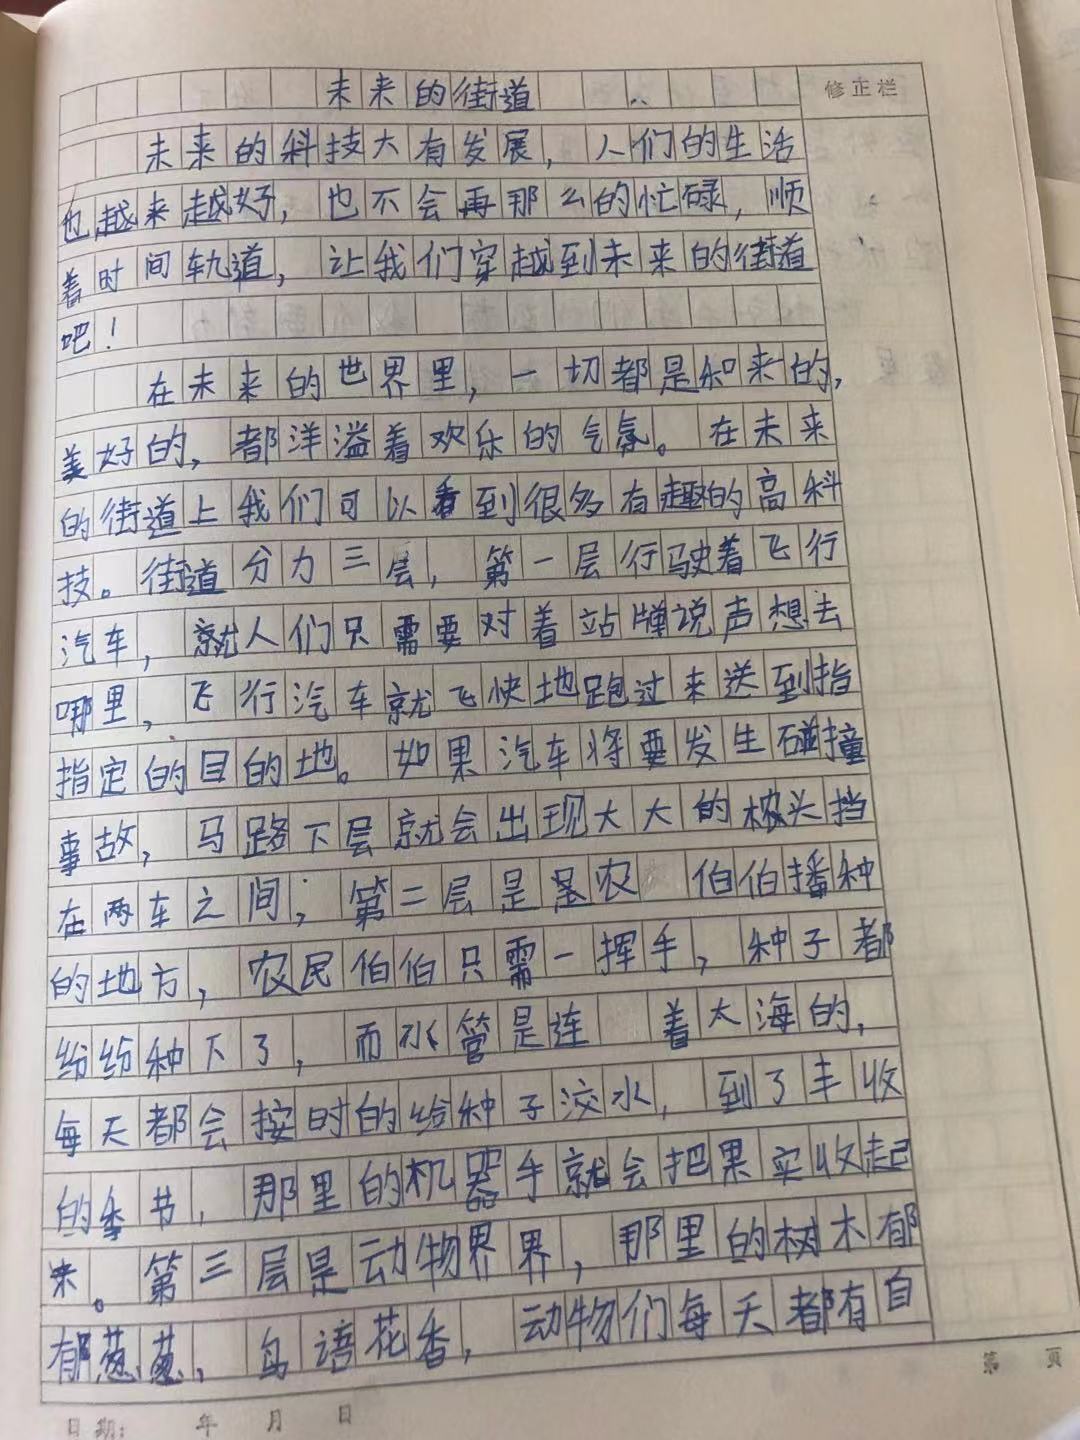 未来的街道
修正栏
未来的科技大有发展，人们的生活
也越来越好，也不会再那么的忙碌，顺
着时间轨道，让我们穿越到未来的街道
吧！
在未来的世界里，一切都是和来的，
美好的，都洋溢着欢乐的气氛。在未来
的街道上我们可以看到很多有趣的高科
技。街道分力三层，第一层行驶着飞行
汽车，就人们只需要对着站牌说声想去
哪里，飞行汽车就飞快地跑过来送到指
指定的目的地。如果汽车将要发生碰撞
事故，马路下层就会出现大大的头挡
在两车之间；第二层是农伯伯播种
的地方，农民伯伯只需一挥手，种子都
纷纷种下了，而水管是连着大海的，
每天都会按时的给种子浇水，到了丰收
的季节，那里的机器手就会把果实收起
来。第三层是动物界界，那里的树木郁
郁葱葱，鸟语花香，动物们每天都有自
第 页
日期： 年 月 日